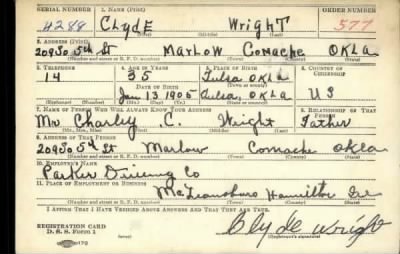 SERIAL NUMBER 1. NAME (Print) ORDER NUMBER
4288 CLyDE WrighT 577
2. ADDRESS (Print)
209 So 5th St MarLow Comache OKLA
3. TELEPHONE 4. AGE IN YEARS 5. PLACE OF BIRTH 6. COUNTRY OF CITIZENSHIP
14 35 Tulsa OKLA
DATE OF BIRTH
Jan 1 1905 Tulsa, OKLA U S
7. NAME OF PERSON WHO WILL ALWAYS KNOW YOUR ADDRESS 8. RELATIONSHIP OF THAT PERSON
Mr Charley C. Wright Father
(Mr., Mrs., Miss) (First) (Middle) (Last)
9. ADDRESS OF THAT PERSON
209 So 5th St Marlow Comache Okla
(Number and street or R. F. D. number) (Town) (County) (State)
10. EMPLOYER'S NAME
Parker Drilling Co
11. PLACE OF EMPLOYMENT OR BUSINESS
McLeansboro Hamilton Ill
(Number and street or R. F. D. number) (Town) (County) (State)
I AFFIRM THAT I HAVE VERIFIED ABOVE ANSWERS AND THAT THEY ARE TRUE.
REGISTRATION CARD
D. S. S. Form 1
Clyde Wright
(Registrant's signature)